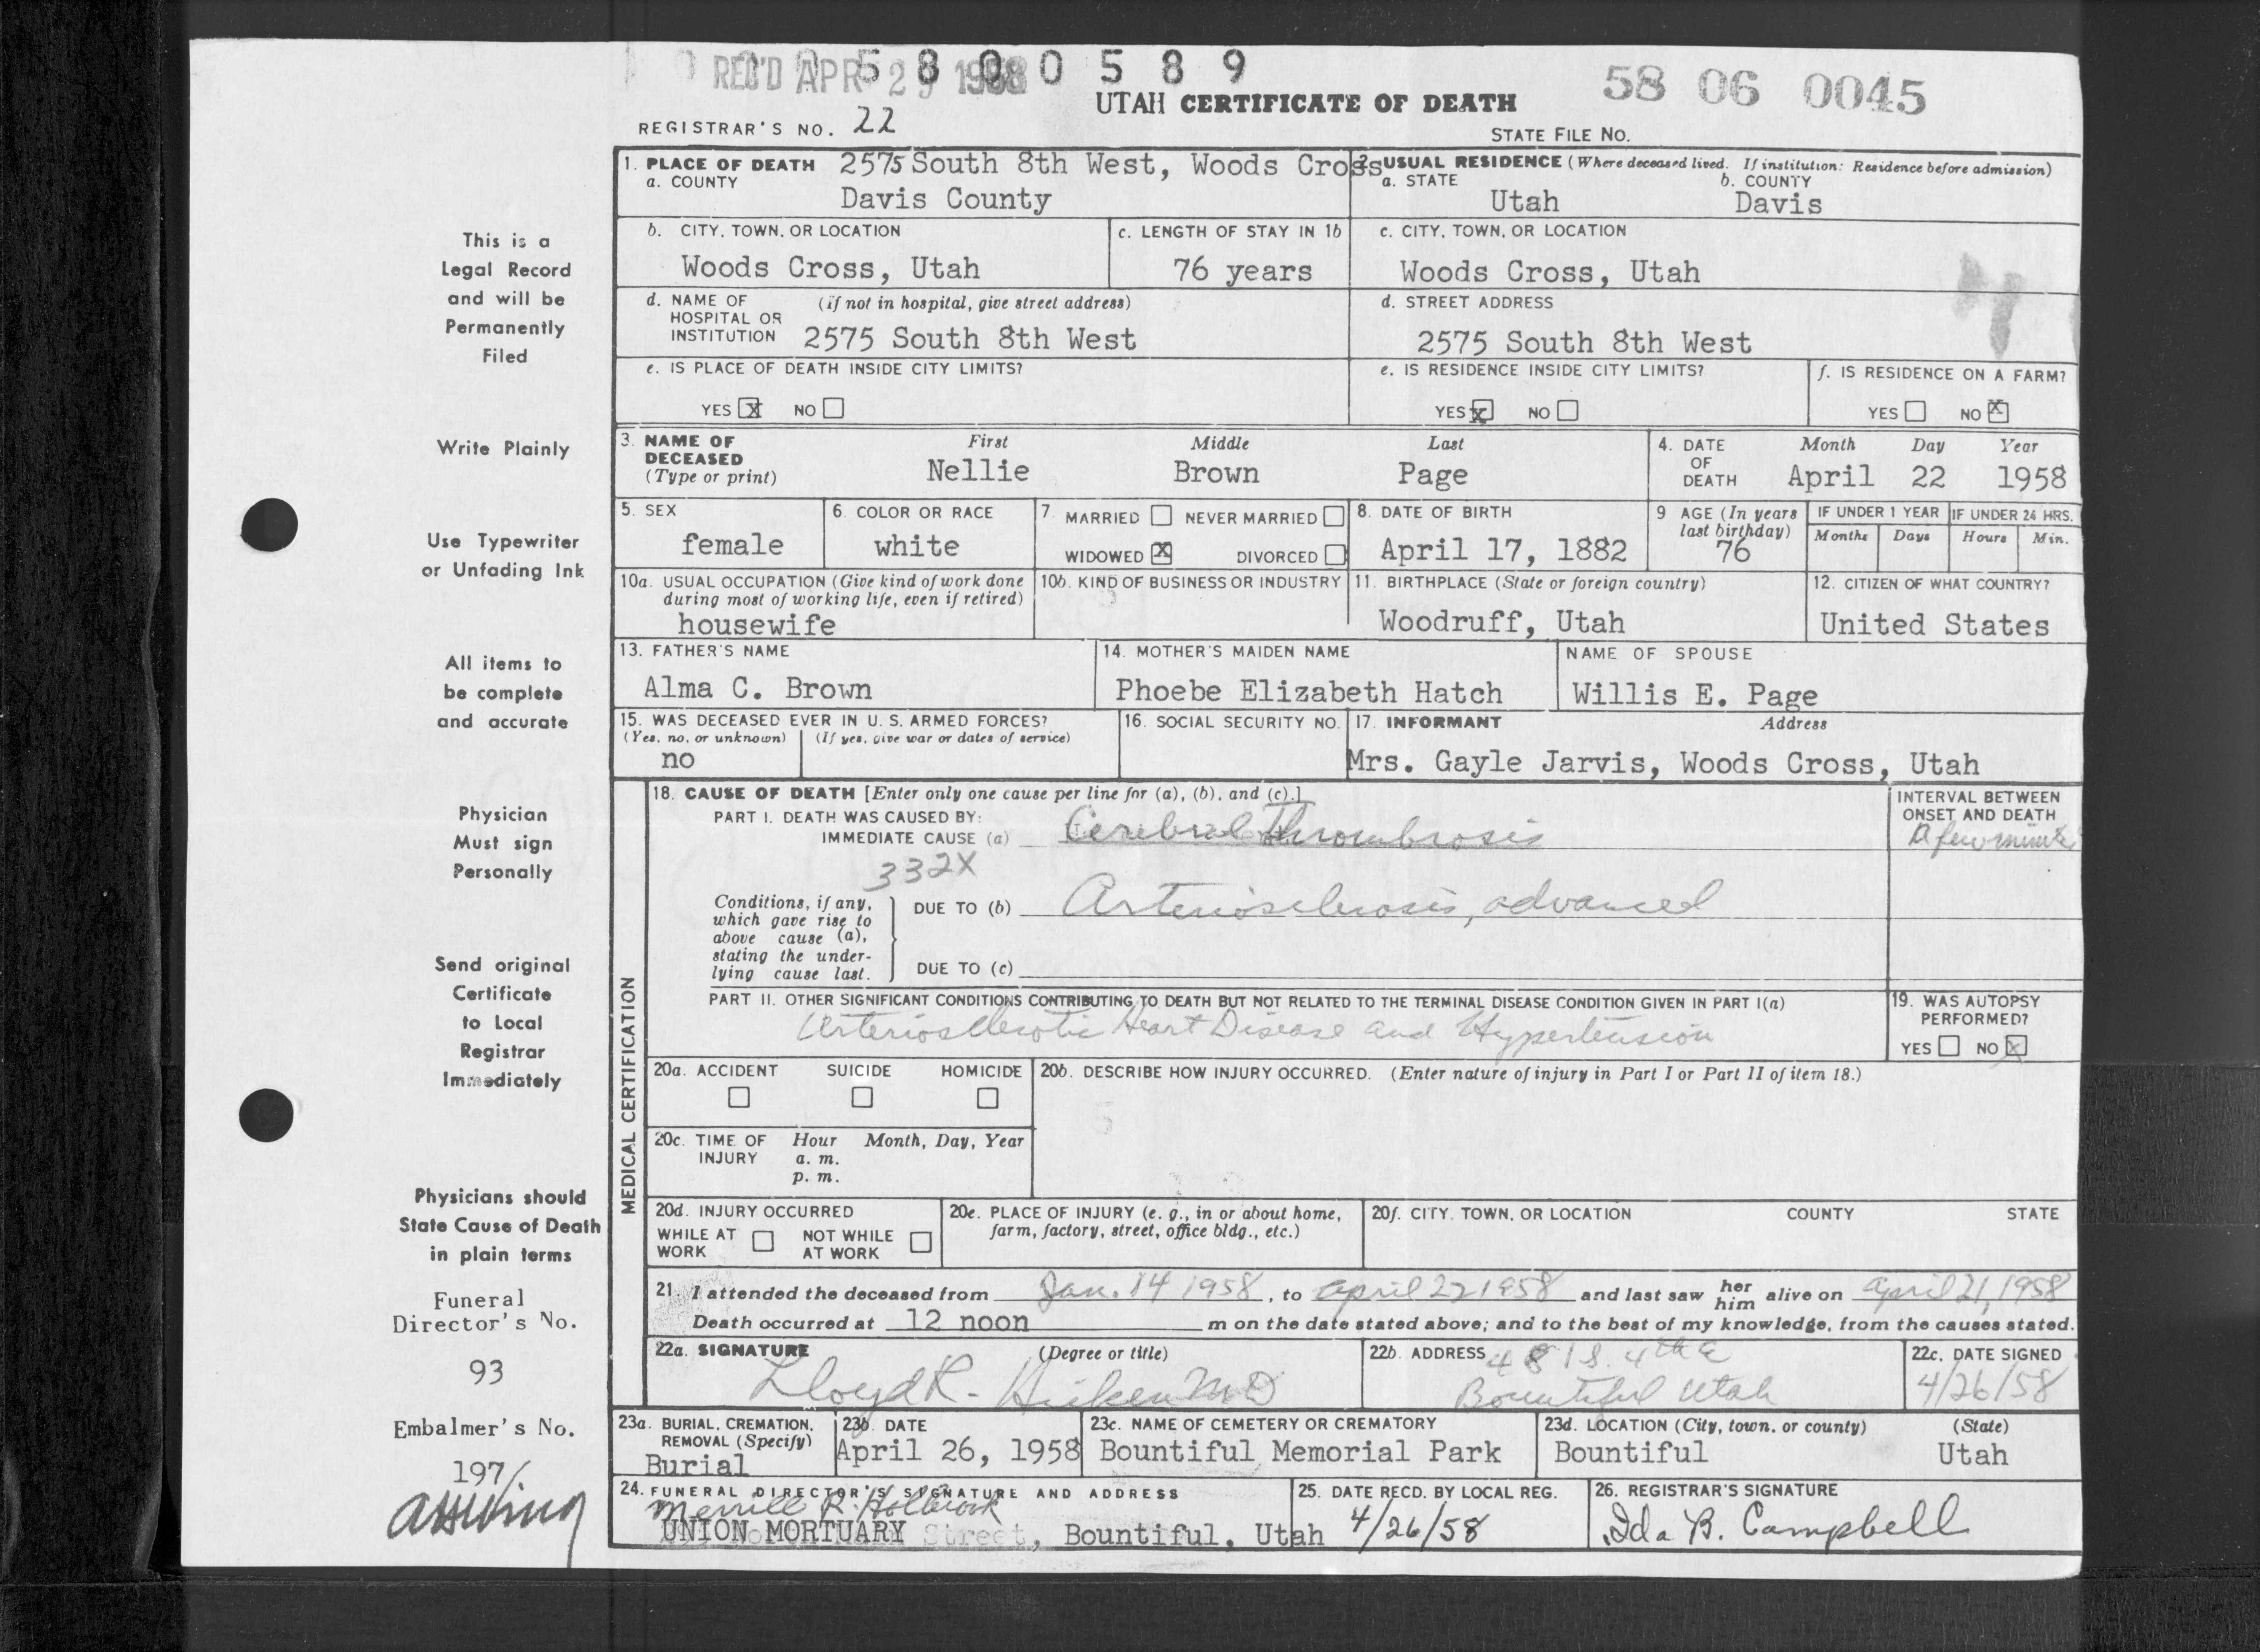 REC'D APR 29 1958
5 8 0 0 5 8 9
58 06 0045
UTAH CERTIFICATE OF DEATH
REGISTRAR'S NO. 22
STATE FILE NO.
1. PLACE OF DEATH 2575 South 8th West, Woods Cross
a. COUNTY
Davis County
2. USUAL RESIDENCE (Where deceased lived. If institution: Residence before admission)
a. STATE b. COUNTY
Utah Davis
b. CITY, TOWN, OR LOCATION
Woods Cross, Utah
c. LENGTH OF STAY IN 1b
76 years
c. CITY, TOWN, OR LOCATION
Woods Cross, Utah
d. NAME OF (if not in hospital, give street address)
HOSPITAL OR
INSTITUTION 2575 South 8th West
d. STREET ADDRESS
2575 South 8th West
e. IS PLACE OF DEATH INSIDE CITY LIMITS?
YES X NO
e. IS RESIDENCE INSIDE CITY LIMITS?
YES X NO
f. IS RESIDENCE ON A FARM?
YES NO X
3. NAME OF First Middle Last
DECEASED
(Type or print) Nellie Brown Page
4. DATE Month Day Year
OF
DEATH April 22 1958
5. SEX
female
6. COLOR OR RACE
white
7 MARRIED NEVER MARRIED
WIDOWED X DIVORCED
8. DATE OF BIRTH
April 17, 1882
9 AGE (In years
last birthday)
76
IF UNDER 1 YEAR IF UNDER 24 HRS.
Months Days Hours Min.
10a. USUAL OCCUPATION (Give kind of work done
during most of working life, even if retired)
housewife
10b. KIND OF BUSINESS OR INDUSTRY
11. BIRTHPLACE (State or foreign country)
Woodruff, Utah
12. CITIZEN OF WHAT COUNTRY?
United States
13. FATHER'S NAME
Alma C. Brown
14. MOTHER'S MAIDEN NAME
Phoebe Elizabeth Hatch
NAME OF SPOUSE
Willis E. Page
15. WAS DECEASED EVER IN U. S. ARMED FORCES?
(Yes, no, or unknown) (If yes, give war or dates of service)
no
16. SOCIAL SECURITY NO.
17. INFORMANT Address
Mrs. Gayle Jarvis, Woods Cross, Utah
MEDICAL CERTIFICATION
18. CAUSE OF DEATH [Enter only one cause per line for (a), (b), and (c).]
PART I. DEATH WAS CAUSED BY:
IMMEDIATE CAUSE (a) Cerebral Thrombrosis
332X
INTERVAL BETWEEN
ONSET AND DEATH
A few minutes
Conditions, if any,
which gave rise to
above cause (a),
stating the under-
lying cause last.
DUE TO (b) Arteriosclerosis, advanced
DUE TO (c)
PART II. OTHER SIGNIFICANT CONDITIONS CONTRIBUTING TO DEATH BUT NOT RELATED TO THE TERMINAL DISEASE CONDITION GIVEN IN PART I(a)
Arteriosclerotic Heart Disease and Hypertension
19. WAS AUTOPSY
PERFORMED?
YES NO X
20a. ACCIDENT SUICIDE HOMICIDE
20b. DESCRIBE HOW INJURY OCCURRED. (Enter nature of injury in Part I or Part II of item 18.)
20c. TIME OF Hour Month, Day, Year
INJURY a. m.
p. m.
20d. INJURY OCCURRED
WHILE AT NOT WHILE
WORK AT WORK
20e. PLACE OF INJURY (e. g., in or about home,
farm, factory, street, office bldg., etc.)
20f. CITY, TOWN, OR LOCATION COUNTY STATE
21. I attended the deceased from Jan. 14 1958, to April 22 1958 and last saw her him alive on April 21, 1958
Death occurred at 12 noon m on the date stated above; and to the best of my knowledge, from the causes stated.
22a. SIGNATURE (Degree or title)
Lloyd R. Hicken MD
22b. ADDRESS 481 S. 4th E
Bountiful Utah
22c. DATE SIGNED
4/26/58
23a. BURIAL, CREMATION,
REMOVAL (Specify)
Burial
23b. DATE
April 26, 1958
23c. NAME OF CEMETERY OR CREMATORY
Bountiful Memorial Park
23d. LOCATION (City, town, or county) (State)
Bountiful Utah
24. FUNERAL DIRECTOR'S SIGNATURE AND ADDRESS
Merrill R. Holbrook
UNION MORTUARY Street, Bountiful, Utah
25. DATE RECD. BY LOCAL REG.
4/26/58
26. REGISTRAR'S SIGNATURE
Ida B. Campbell
This is a
Legal Record
and will be
Permanently
Filed
Write Plainly
Use Typewriter
or Unfading Ink
All items to
be complete
and accurate
Physician
Must sign
Personally
Send original
Certificate
to Local
Registrar
Immediately
Physicians should
State Cause of Death
in plain terms
Funeral
Director's No.
93
Embalmer's No.
197